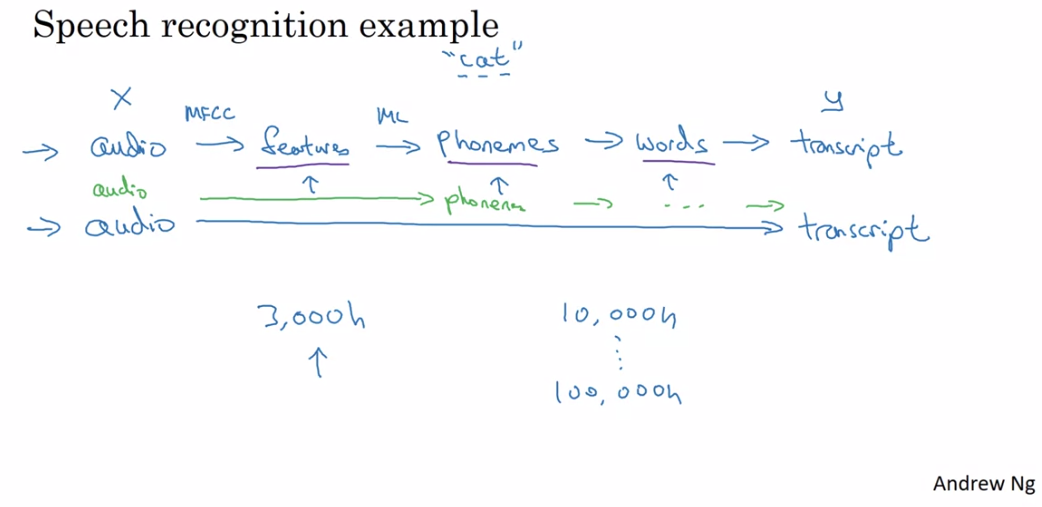 Speech recognition example
"cat"
X MFCC ML y
→ audio → features → phonemes → words → transcript
↑ ↑ ↑
audio → phonemes → ... →
→ audio → transcript
3,000h 10,000h
↑ ⋮
100,000h
Andrew Ng